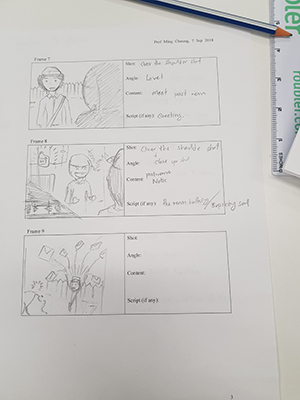 Prof Ming Cheung, 7 Sep 2018
Frame 7
Shot: Over the shoulder shot
Angle: Level
Content: meet post man
Script (if any): Greeting.
Frame 8
Shot: Over the shoulder shot
close up
Angle:
Content:
Script (if any): The man
Frame 9
Shot:
Angle:
Content:
Script (if any):
3